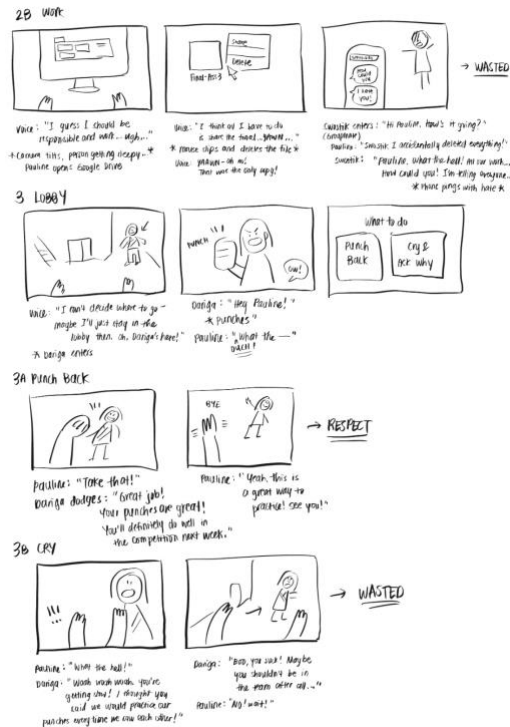 2B Work
Save
Delete
Final-Ass3
→ WASTED
Voice: "I guess I should be
responsible and work... ugh..."
*camera tilts, person getting sleepy...*
Pauline opens Google Drive
Voice: "I think all I have to do
is save the final...
*mouse slips and deletes the file*
Voice: oh no!
That was the only copy!"
Swastik enters: "Hi Pauline, how's it going?"
(Groupmate)
Pauline: "Swastik I accidentally deleted everything!"
Swastik: "Pauline, what the hell! All our work...
How could you! I'm telling everyone...
*Phone pings with hate*
3 LOBBY
PUNCH
OW!
What to do
Punch
Back
Cry &
Ask Why
Voice: "I can't decide where to go –
maybe I'll just stay in the
lobby then. Oh, Dariga's here!"
*Dariga enters
Dariga: "Hey Pauline!"
*Punches*
Pauline: "What the —"
OUCH!
3A Punch Back
BYE
→ RESPECT
Pauline: "Take that!"
Dariga dodges: "Great job!
Your punches are great!
You'll definitely do well in
the competition next week."
Pauline: "Yeah, this is
a great way to
practice! See you!"
3B CRY
!!!
→ WASTED
Pauline: "What the hell!"
Dariga: "Wash wash wash. You're
getting slow! I thought you
said we would practice our
punches every time we saw each other!"
Dariga: "Boo, you suck! Maybe
you shouldn't be in
the team after all..."
Pauline: "No! Wait!"